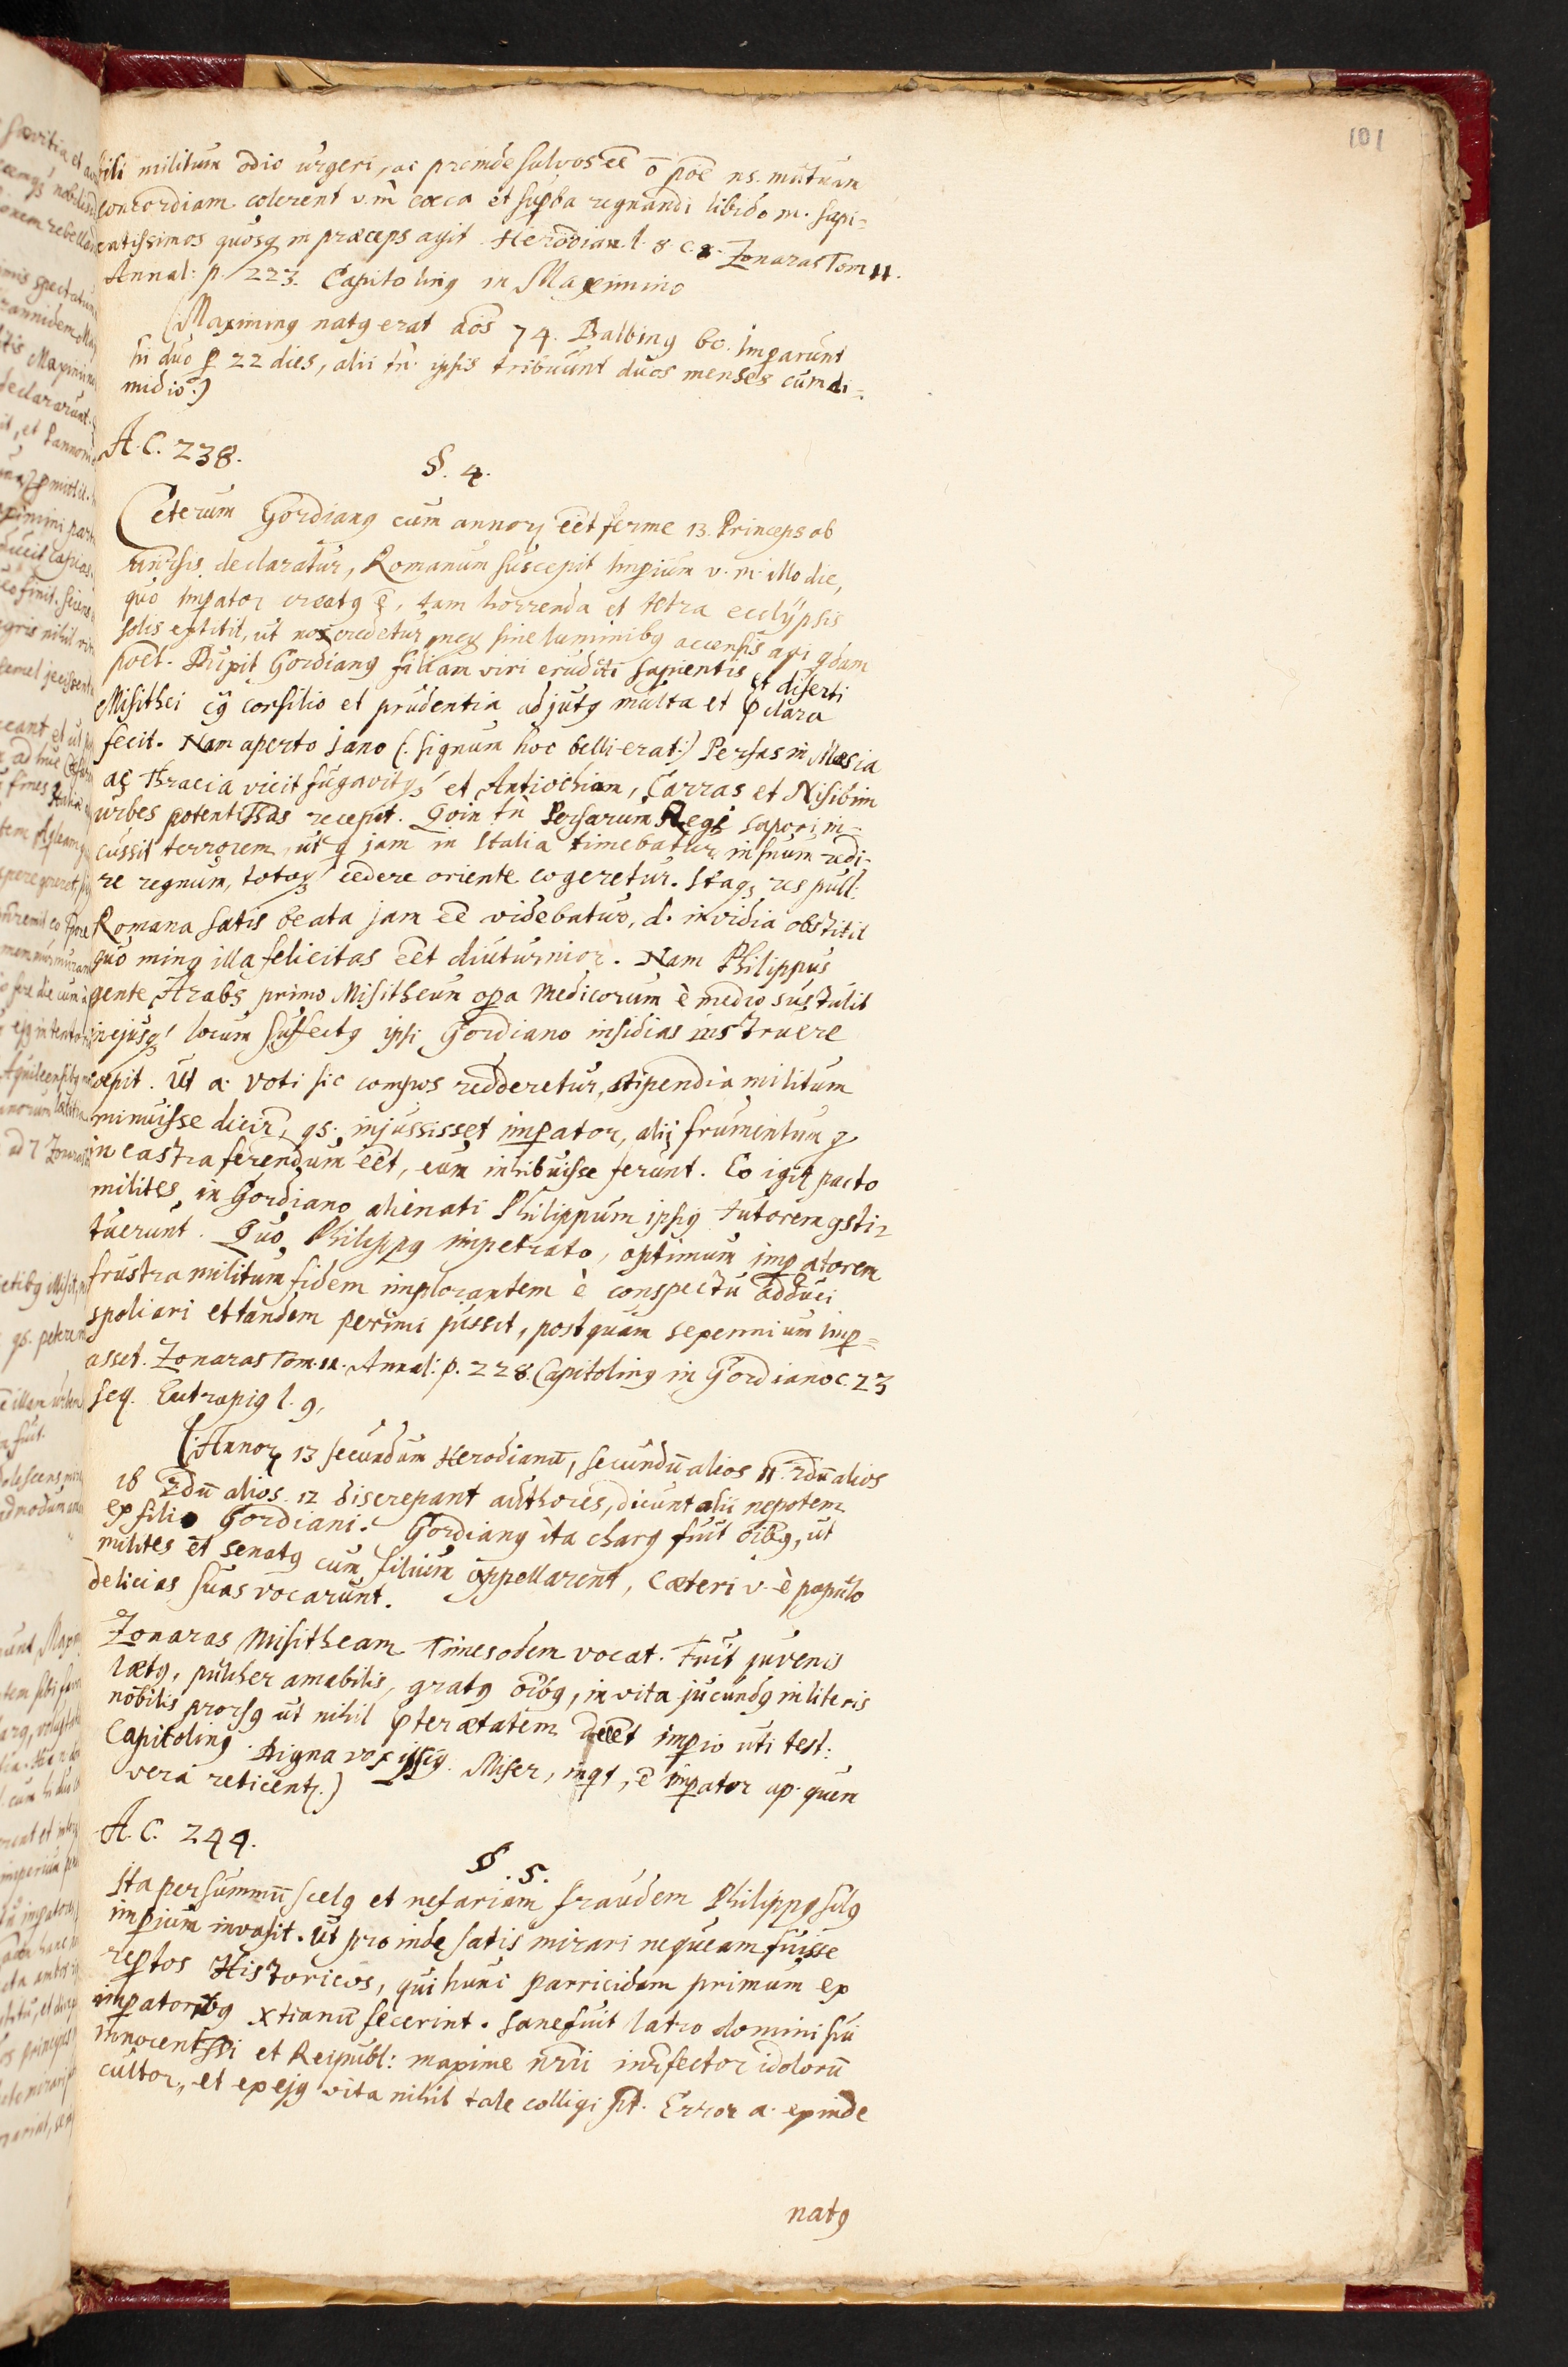 101
bili militum odio urgeri, ac proinde salvos eē ō poē ns. mutuam
concordiam colerent v. m̄ cæca et supba regnandi libido m. sapi=
entissimos quosq in præceps agit. Herodian. l. 8. c. 8. Zonaras Tom 11.
Annal: p. 223. Capitoling in Maximino
(Maximing natg erat aōs 74. Balbing 60. Imparunt
hi duo p 22 dies, alii tn̄. ipsis tribuunt duos menses cum di=
midio.)
A. C. 238.
§. 4.
Ceterum Gordiang cum annoꝝ eēt ferme 13. Princeps ob
univsis declaratur, Romanum suscepit Impium v. m. illo die,
quo Impator creatg ē, tam horrenda et tetra eclÿpsis
solis extitit, ut nox crederetur, neq sine luminibg accensis agi qdam
poēt. Duxit Gordiang filiam viri eruditi sapientis et diserti
Misithei cg consilio et prudentia adjutg multa et pclara
fecit. Nam aperto Jano (: signum hoc belli erat :) Persas in Mæsia
ac Thracia vicit fugavitq, et Antiochiam, Carras et Nisibim
urbes potentissas recepit. Qoin tn̄ Persarum Regi Sapori in=
cussit terrorem, ut q jam in Italia timebatur, in suum redi=
re regnum, totoq cedere oriente cogeretur. Itaq res publ:
Romana satis beata jam eē videbatur, d. invidia obstitit
quo ming illa felicitas eēt diuturnior. Nam Philippus
gente Arabs primo Misitheum opa Medicorum è medio sustulit
in ejusq locum suffectg ipsi Gordiano insidias instruere
cœpit. Ut a. voti sic compos redderetur, stipendia militum
minuisse dicir, qs. injussisset impator, alii frumentum q
in castra ferendum eēt, eum inhibuisse ferunt. Eo igit pacto
milites in Gordiano alienati Philippum ipsig tutorem gsti=
tuerunt. Quo Philippg impetrato, optimum impatorem
frustra militum fidem implorantem è conspectu adduci
spoliari et tandem perimi jussit, postquam sexennium imp=
asset. Zonaras Tom. 11. Annal: p. 228. Capitoling in Gordiano c. 23
seq. Eutropig l. 9.
(Annoꝝ 13 secundum Herodianū, secundū alios 11. 2dū alios
18 2dū alios. 12 discrepant authores, dicunt alii nepotem
ex filio Gordiani. Gordiang ita charg fuit oībg, ut
milites et senatg eum filium appellarent, Cæteri v. è populo
delicias suas vocarunt.
Zonaras Misitheam Timesodem vocat. Fuit juvenis
lætg, pulcher amabilis, gratg oībg, in vita jucundg in literis
nobilis prorsg ut nihil pter ætatem deēt impio uti test:
Capitoling. Digna vox ipsig. Miser, inqt, ē impator ap. quem
vera reticentr.)
A. C. 244.
§. 5.
Ita per summū scelg et nefariam fraudem Philippg
impium invasit. Ut proinde satis mirari nequeam fuisse
reptos Historicos, qui hunc parricidam primum ex
impatoribg Xtianū fecerint. Sane fuit latro domini sui
innocentssi et Reipubl: maxime nrii infector idolorū
cultor, et ex ejg vita nihil tale colligi pt. Error a. exinde
natg